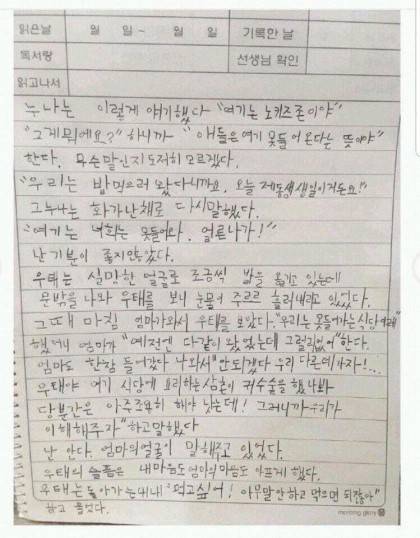 읽은날 월 일 ~ 월 일 기록한 날
독서량 선생님 확인
읽고나서
누나는 이렇게 얘기했다 "여기는 노키즈존이야"
"그게뭐에요?" 하니까 "애들은 여기 못들어 온다는 뜻이야"
한다. 무슨말인지도저히 모르겠다.
"우리는 밥먹으러 왔다니까요. 오늘 제동생 생일이거든요!"
그누나는 화가난채로 다시말했다.
"여기는 너희는 못들어와. 얼른나가!"
난 기분이 좋지않았다.
우태는 실망한 얼굴로 조금씩 발을 옮기고 있는데
문밖을 나와 우태를 보니 눈물이 주르르 흘러내리고 있었다.
그때 마침 엄마가와서 우태를 보았다. "우리는 못들어가는 식당이래"
했더니 엄마가 "예전엔 다같이 왔었는데 그럴리없어"한다.
엄마도 한참 들어갔다 나와서 "안되겠다 우리 다른데가자!...
우태야 여기 식당에 요리하는삼촌이 귀수술을 했나봐
당분간은 아주조용히 해야 낫는데! 그러니까 우리가
이해해주자"하고말했다
난 안다. 엄마의얼굴이 말해주고 있었다.
우태의 슬픔은 내마음도엄마의마음도 아프게 했다.
우태는돌아가는내내 "먹고싶어! 아무말안하고 먹으면 되잖아"
하고 졸랐다.
morning glory